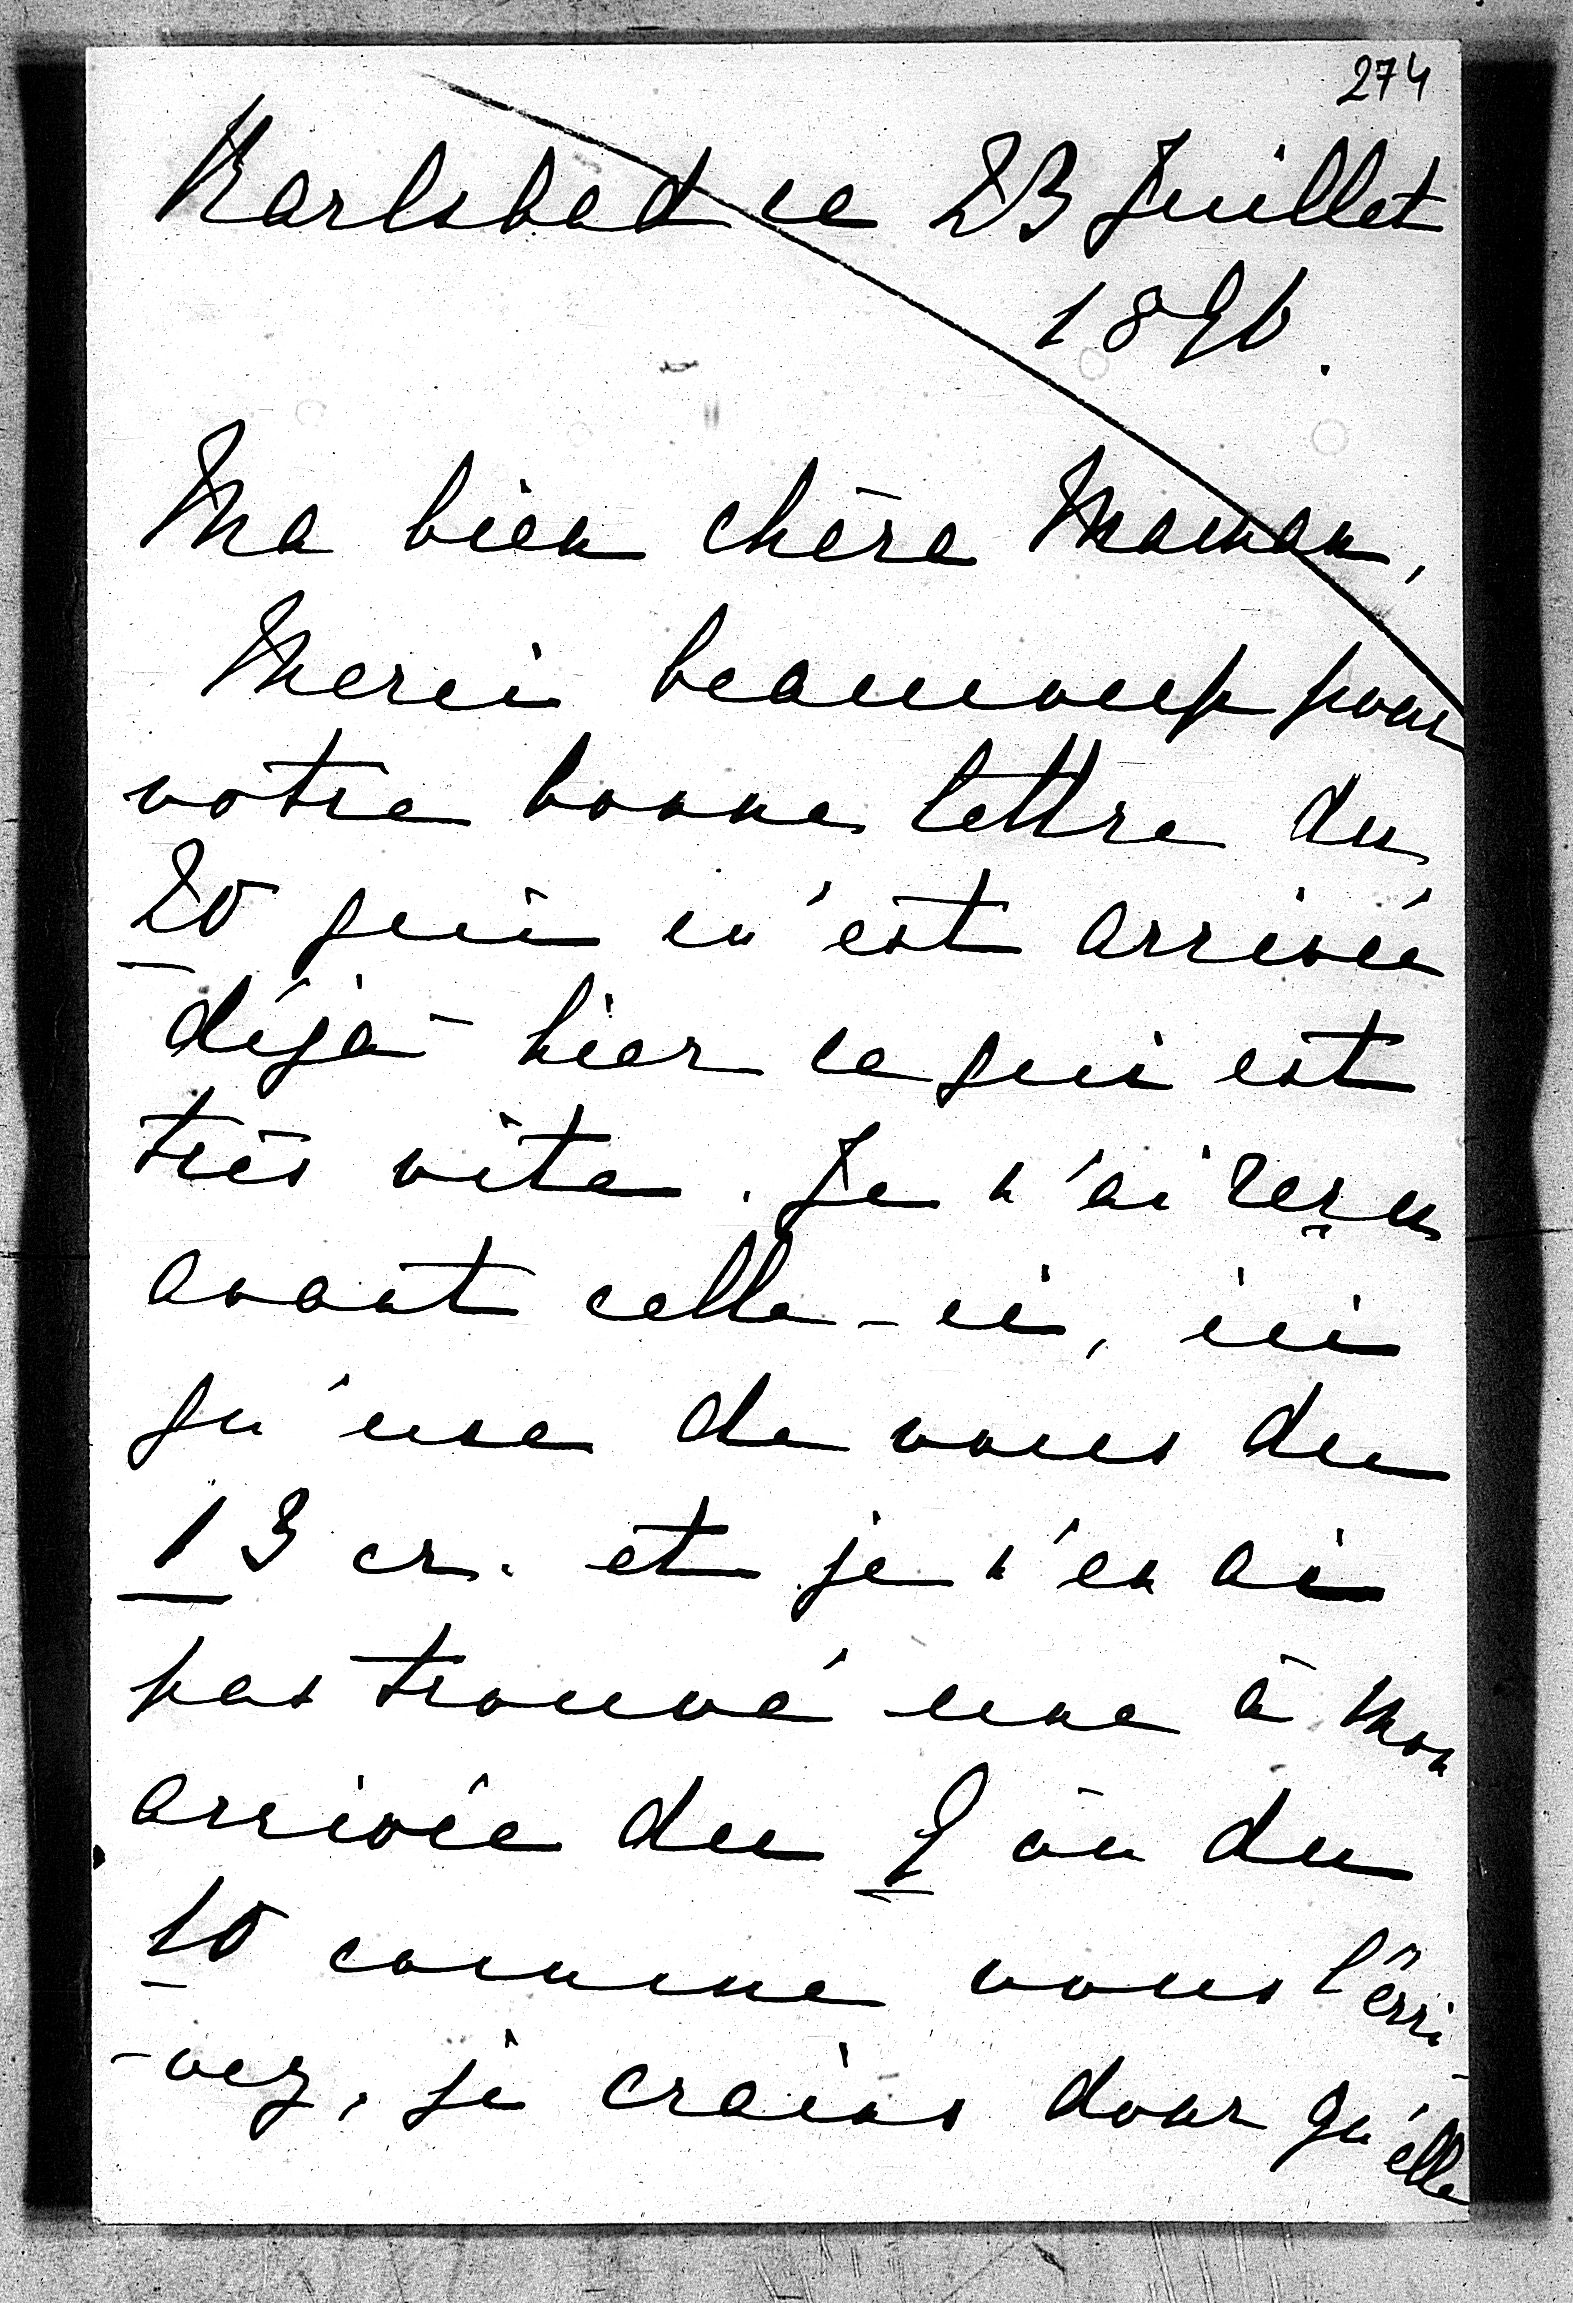 274
Karlsbad ce 23 Juillet
1896.
Ma bien chère Maman,
Merci beaucoup pour
votre bonne lettre du
20 qui m'est arrivée
déjà hier ce qui est
très vite. Je n'ai reçu
avant celle-ci, ici
qu'une de vous du
13 cr. et je n'en ai
pas trouvé une à mon
arrivée du 9 ou du
10 comme vous l'écri-
-vez, je crains donc qu'elle